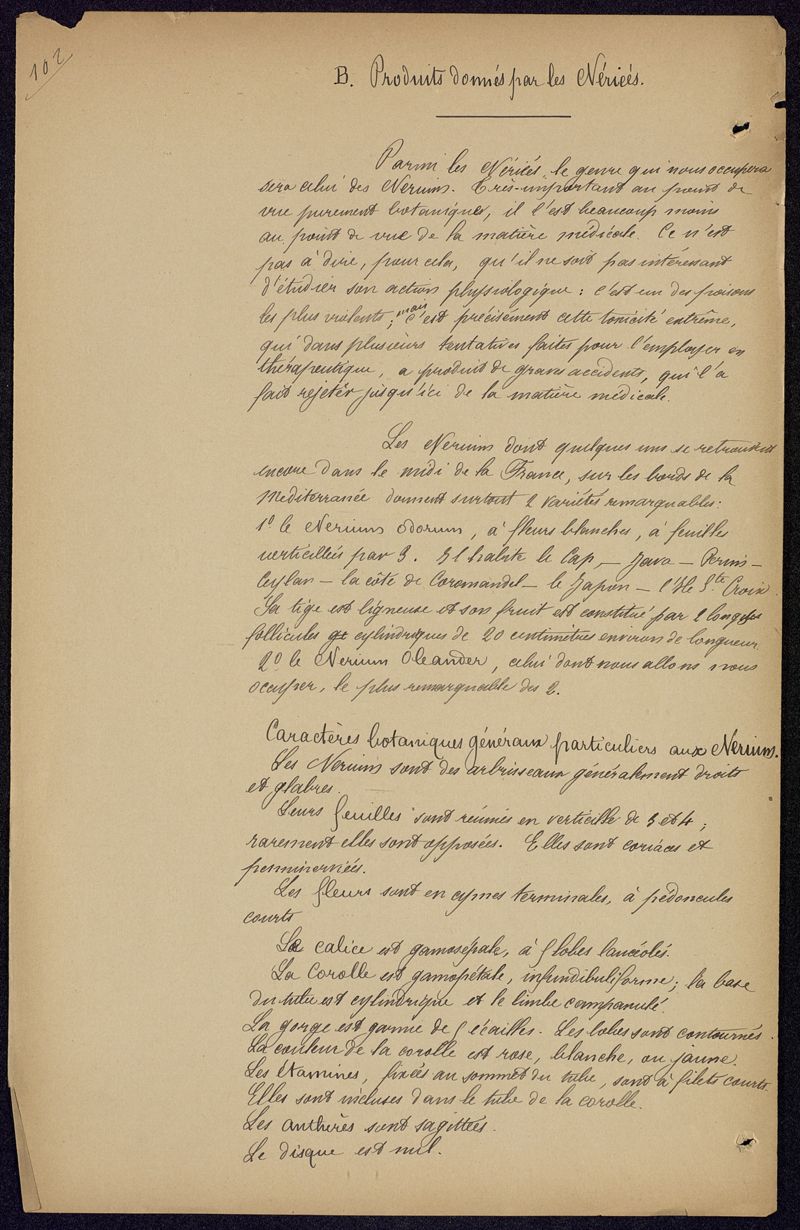 102
B. Produits donnés par les Nériées.
Parmi les Nériées, le genre qui nous occupera
sera celui des Neriums. Très-important au point de
vue purement botanique, il l'est beaucoup moins
au point de vue de la matière médicale. Ce n'est
pas à dire, pour cela, qu'il ne soit pas intéressant
d'étudier son action physiologique : c'est un des poisons
les plus violents ; mais c'est précisément cette toxicité extrême,
qui dans plusieurs tentatives faites pour l'employer en
thérapeutique, a produit de graves accidents, qui l'a
fait rejeter jusqu'ici de la matière médicale.
Les Neriums dont quelques uns se retrouvent
encore dans le midi de la France, sur les bords de la
Mediterranée donnent surtout 2 variétés remarquables :
1º le Nerium odorum, à fleurs blanches, à feuilles
verticillées par 3. Il habite le Cap, — Java —
Ceylan — la côte de Coromandel — le Japon — l'Ile Ste Croix
Sa tige est ligneuse et son fruit est constitué par 2 longues
follicules cylindriques de 20 centimètres environ de longueur.
2º le Nerium Oleander, celui dont nous allons nous
occuper, le plus remarquable des 2.
Caractères botaniques généraux particuliers aux Neriums.
Les Neriums sont des arbrisseaux généralement droits
et glabres.
Leurs feuilles sont réunies en verticille de 3 et 4 ;
rarement elles sont opposées. Elles sont coriaces et
penninerviées.
Les fleurs sont en cymes terminales, à pédoncules
courts
Le calice est gamosépale, à 5 lobes lancéolés.
La corolle est gamopétale, infundibuliforme ; la base
du tube est cylindrique et le limbe campanulé.
La gorge est garnie de 5 écailles. Les lobes sont contournés.
La couleur de la corolle est rose, blanche, ou jaune.
Les étamines, fixées au sommet du tube, sont à filets courts.
Elles sont incluses dans le tube de la corolle.
Les anthères sont sagittées.
Le disque est nul.